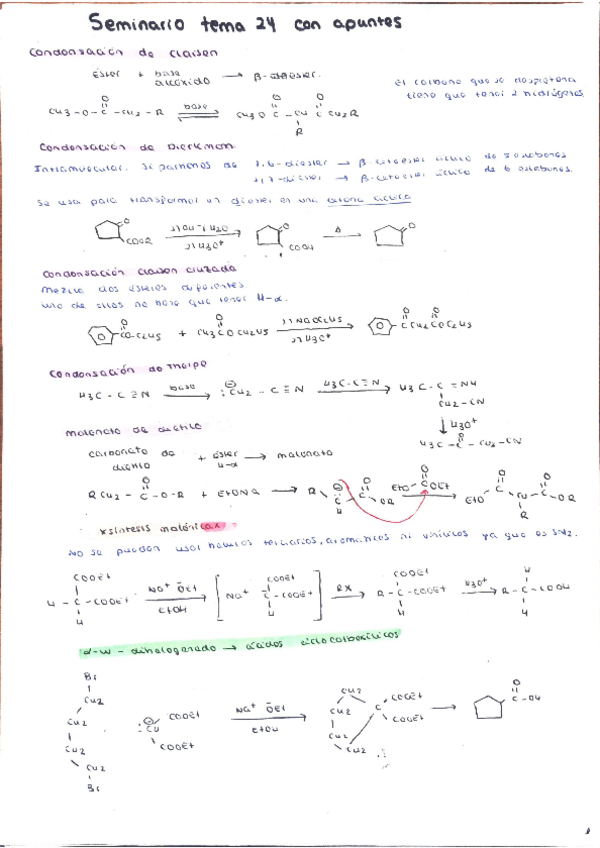 Seminario tema 24 con apuntes
Condensación de claisen
éster + base alcóxido → β-cetoester.
el carbono que se desprotona
tiene que tener 2 hidrógenos.
CH3-O-C-CH2-R base CH3O C CH C CH2R
O O O
R
Condensación de Dieckman
Intramuscular. Si partimos de 1,6-diester → β-cetoester cíclico de 5 carbonos
1,7-diester → β-cetoester cíclico de 6 carbonos.
Se usa para transformar un diester en una cetona cíclica
O COOR 1) OH-/H2O 2) H3O+ O COOH Δ O
Condensación claisen cruzada
Mezcla dos ésteres diferentes
uno de ellos no tiene que tener H-α.
CO-C2H5 + CH3COC2H5 1) NaOC2H5 2) H3O+ CCH2COC2H5
Condensación de Thorpe
H3C-C≡N base → :CH2-C≡N H3C-C≡N → H3C-C=NH
CH2-CN
↓ H3O+
H3C-C-CH2-CN
O
malonato de dietilo
carbonato de dietilo + éster H-α → malonato
RCH2-C-O-R + EtONa → R C C OR EtO C OEt → EtO C CH C OR
O H O O O O
R
*síntesis malónicas
No se pueden usar haluros terciarios, aromáticos ni vinílicos ya que es SN2.
COOEt COOEt COOEt H
H-C-COOEt Na+ ŌEt EtOH → [Na+ C-COOEt] RX → R-C-COOEt H3O+ → R-C-COOH
H H H H
α-ω-dihalogenado → ácidos ciclocarboxílicos
Br
CH2 CH2 COOEt O
CH2 CH COOEt Na+ ŌEt CH2 C COOEt → C-OH
CH2 COOEt EtOH CH2
CH2 CH2
Br